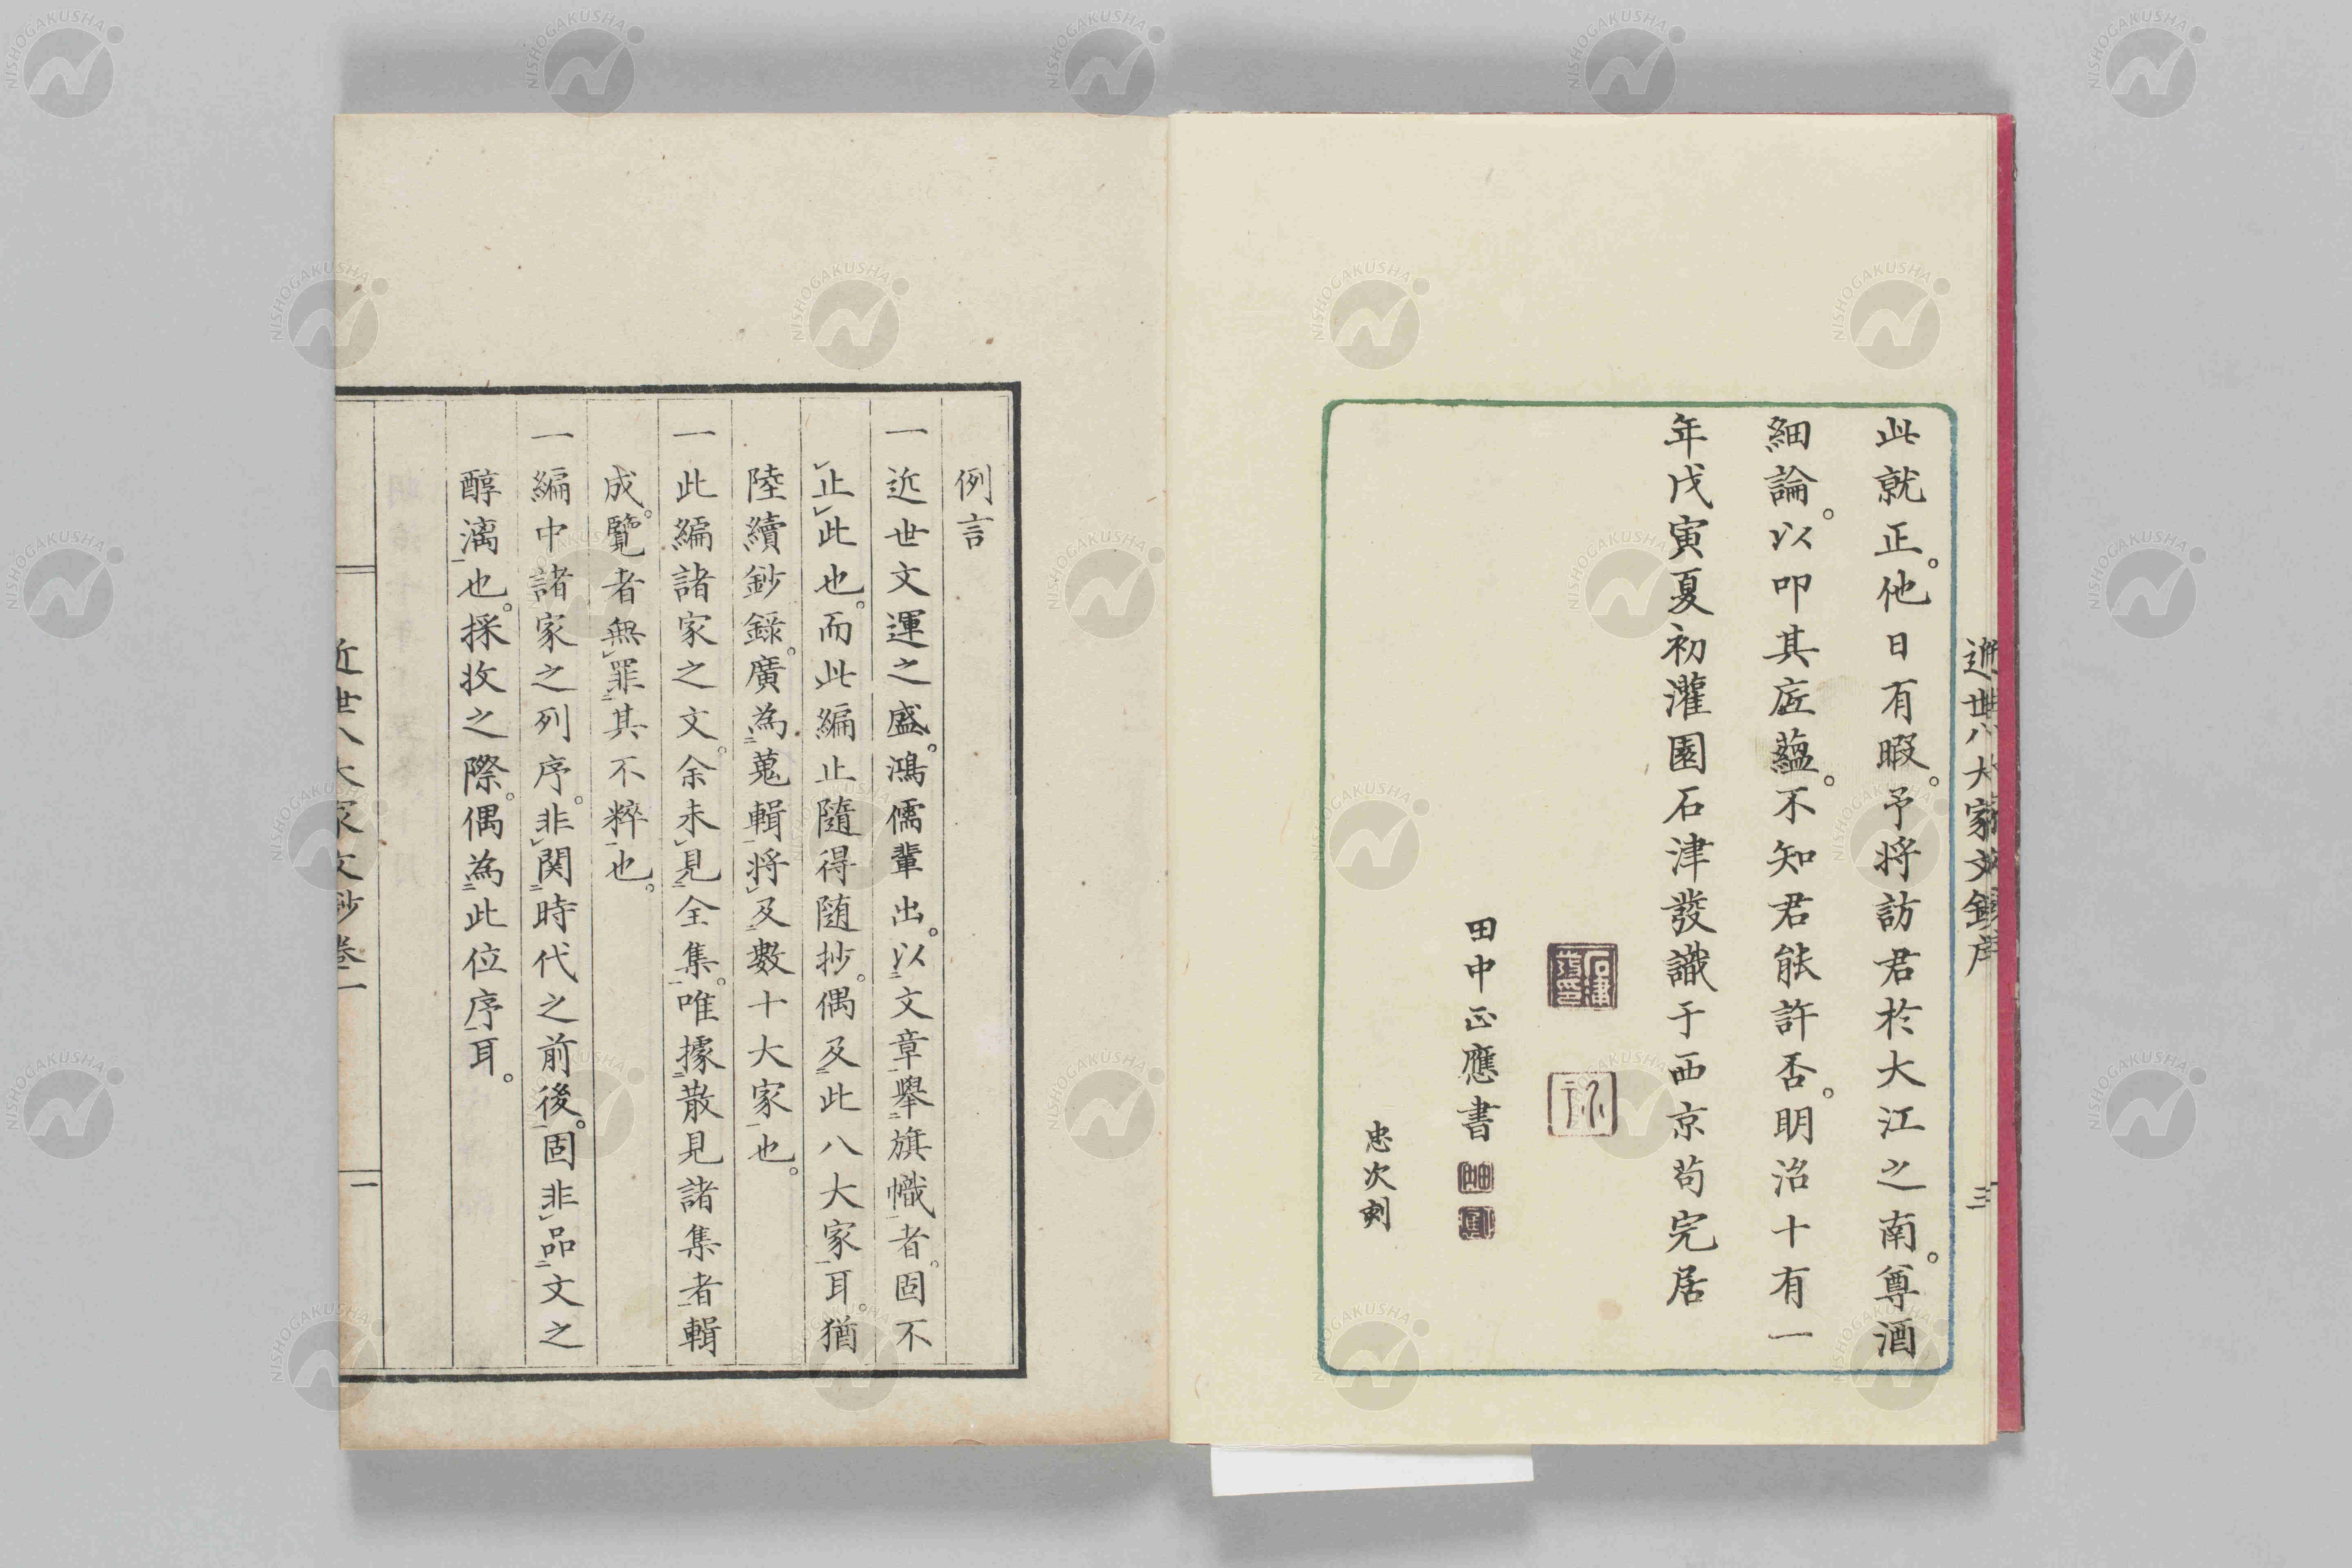 近世八大家文鈔序
三
此就正。他日有暇。予将訪君於大江之南。尊酒
細論。以叩其底蘊。不知君能許否。明治十有一
年戊寅夏初灌園石津發識于西京苟完居
田中正應書
忠次刻
例言
一近世文運之盛。鴻儒輩出。以文章擧旗幟者。固不
止此也。而此編止隨得随抄。偶及此八大家耳。猶
陸續鈔錄。廣為蒐輯将及數十大家也。
一此編諸家之文。余未見全集。唯據散見諸集者輯
成。覽者無罪其不粹也。
一編中諸家之列序。非関時代之前後。固非品文之
醇漓也。採收之際。偶為此位序耳。
近世八大家文鈔卷一
一
NISHOGAKUSHA